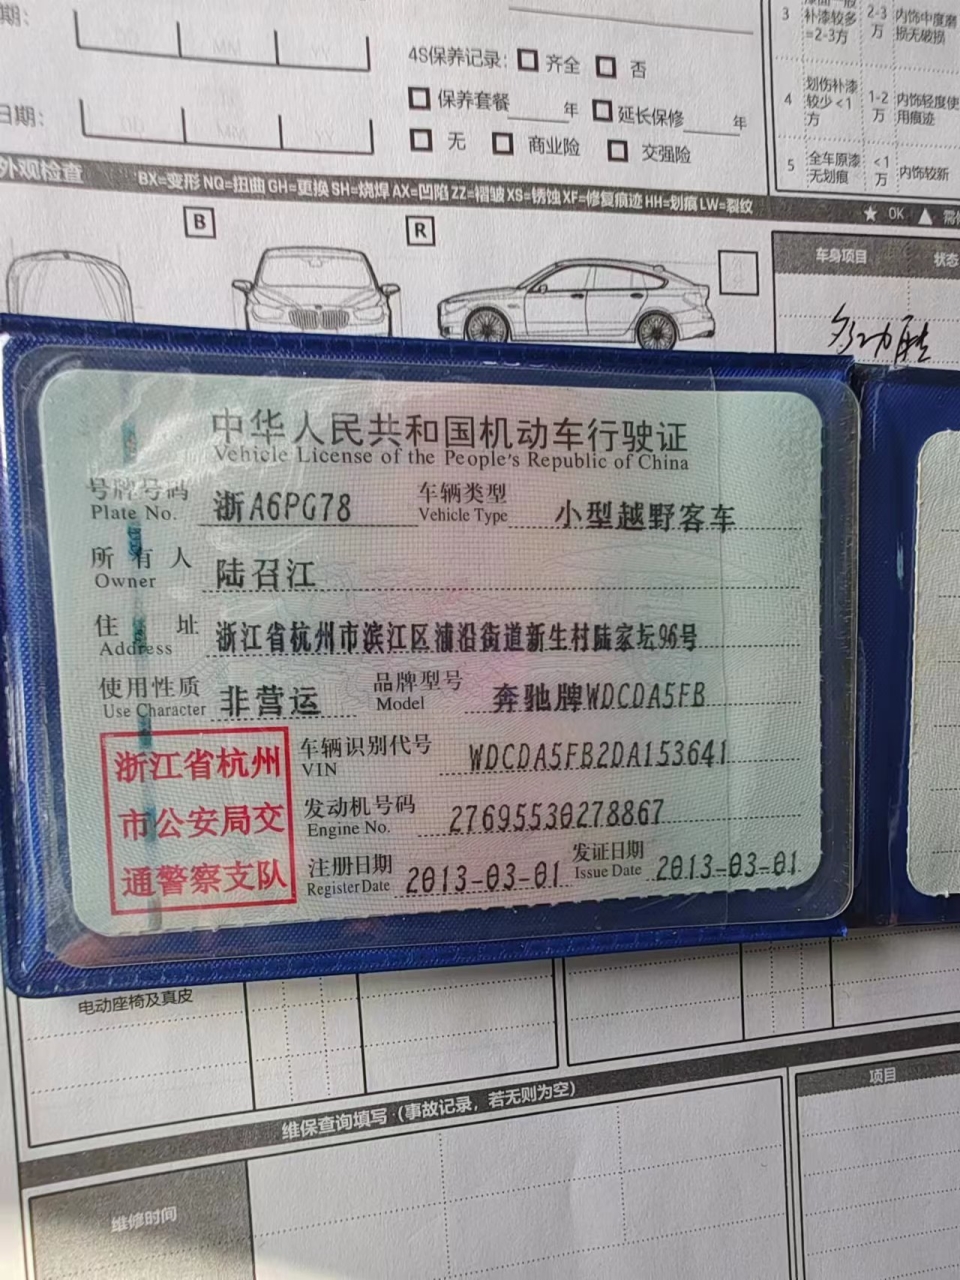 期：
DD MM YY
4S保养记录： 齐全 否
日期：
DD MM YY
保养套餐 年 延长保修 年
无 商业险 交强险
3 补漆较多=2-3方 2-3万 内饰中度磨损无破损
4 划伤补漆较少<1方 1-2万 内饰轻度使用痕迹
5 全车原漆无划痕 <1万 内饰较新
外观检查 BX=变形 NQ=扭曲 GH=更换 SH=烧焊 AX=凹陷 ZZ=褶皱 XS=锈蚀 XF=修复痕迹 HH=划痕 LW=裂纹
★ OK ▲
B R
车身项目 状态
中华人民共和国机动车行驶证
Vehicle License of the People's Republic of China
号牌号码 浙A6PG78 车辆类型 小型越野客车
Plate No. Vehicle Type
所有人 陆召江
Owner
住址 浙江省杭州市滨江区浦沿街道新生村陆家坛96号
Address
使用性质 非营运 品牌型号 奔驰牌WDCDA5FB
Use Character Model
浙江省杭州
市公安局交
通警察支队
车辆识别代号 WDCDA5FB2DA153641
VIN
发动机号码 27695530278867
Engine No.
注册日期 2013-03-01 发证日期 2013-03-01
Register Date Issue Date
电动座椅及真皮
维保查询填写（事故记录，若无则为空）
项目
维修时间